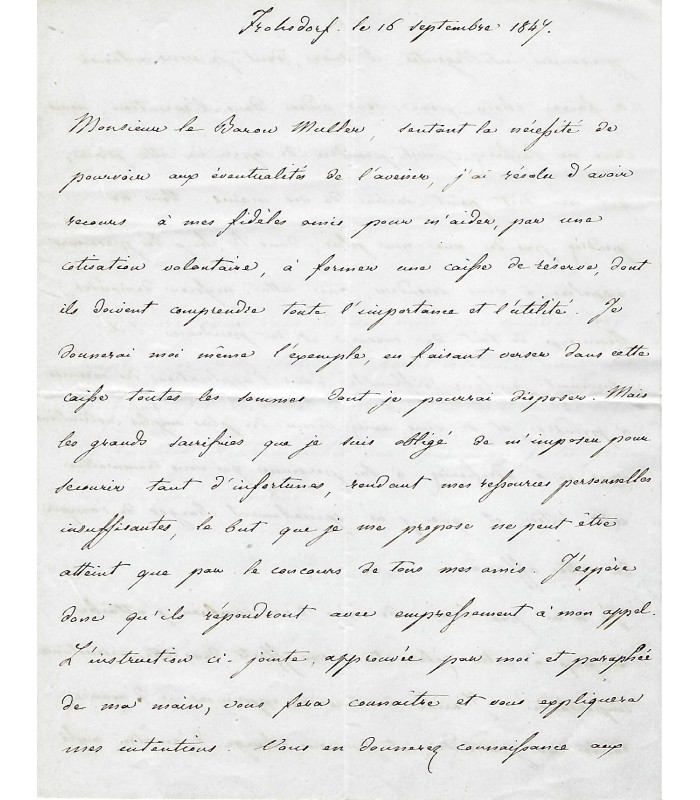 Frohsdorf. le 16 septembre 1847.
Monsieur le Baron Muller, sentant la nécessité de
pourvoir aux éventualités de l'avenir, j'ai résolu d'avoir
recours à mes fidèles amis pour m'aider, par une
cotisation volontaire, à former une caisse de réserve, dont
ils doivent comprendre toute l'importance et l'utilité. Je
donnerai moi même l'exemple, en faisant verser dans cette
caisse toutes les sommes dont je pourrai disposer. Mais
les grands sacrifices que je suis obligé de m'imposer pour
secourir tant d'infortunes, rendant mes ressources personnelles
insuffisantes, le but que je me propose ne peut être
atteint que par le concours de tous mes amis. J'espère
donc qu'ils répondront avec empressement à mon appel.
L'instruction ci-jointe, approuvée par moi et paraphée
de ma main, vous fera connaître et vous expliquera
mes intentions. Vous en donnerez connaissance aux